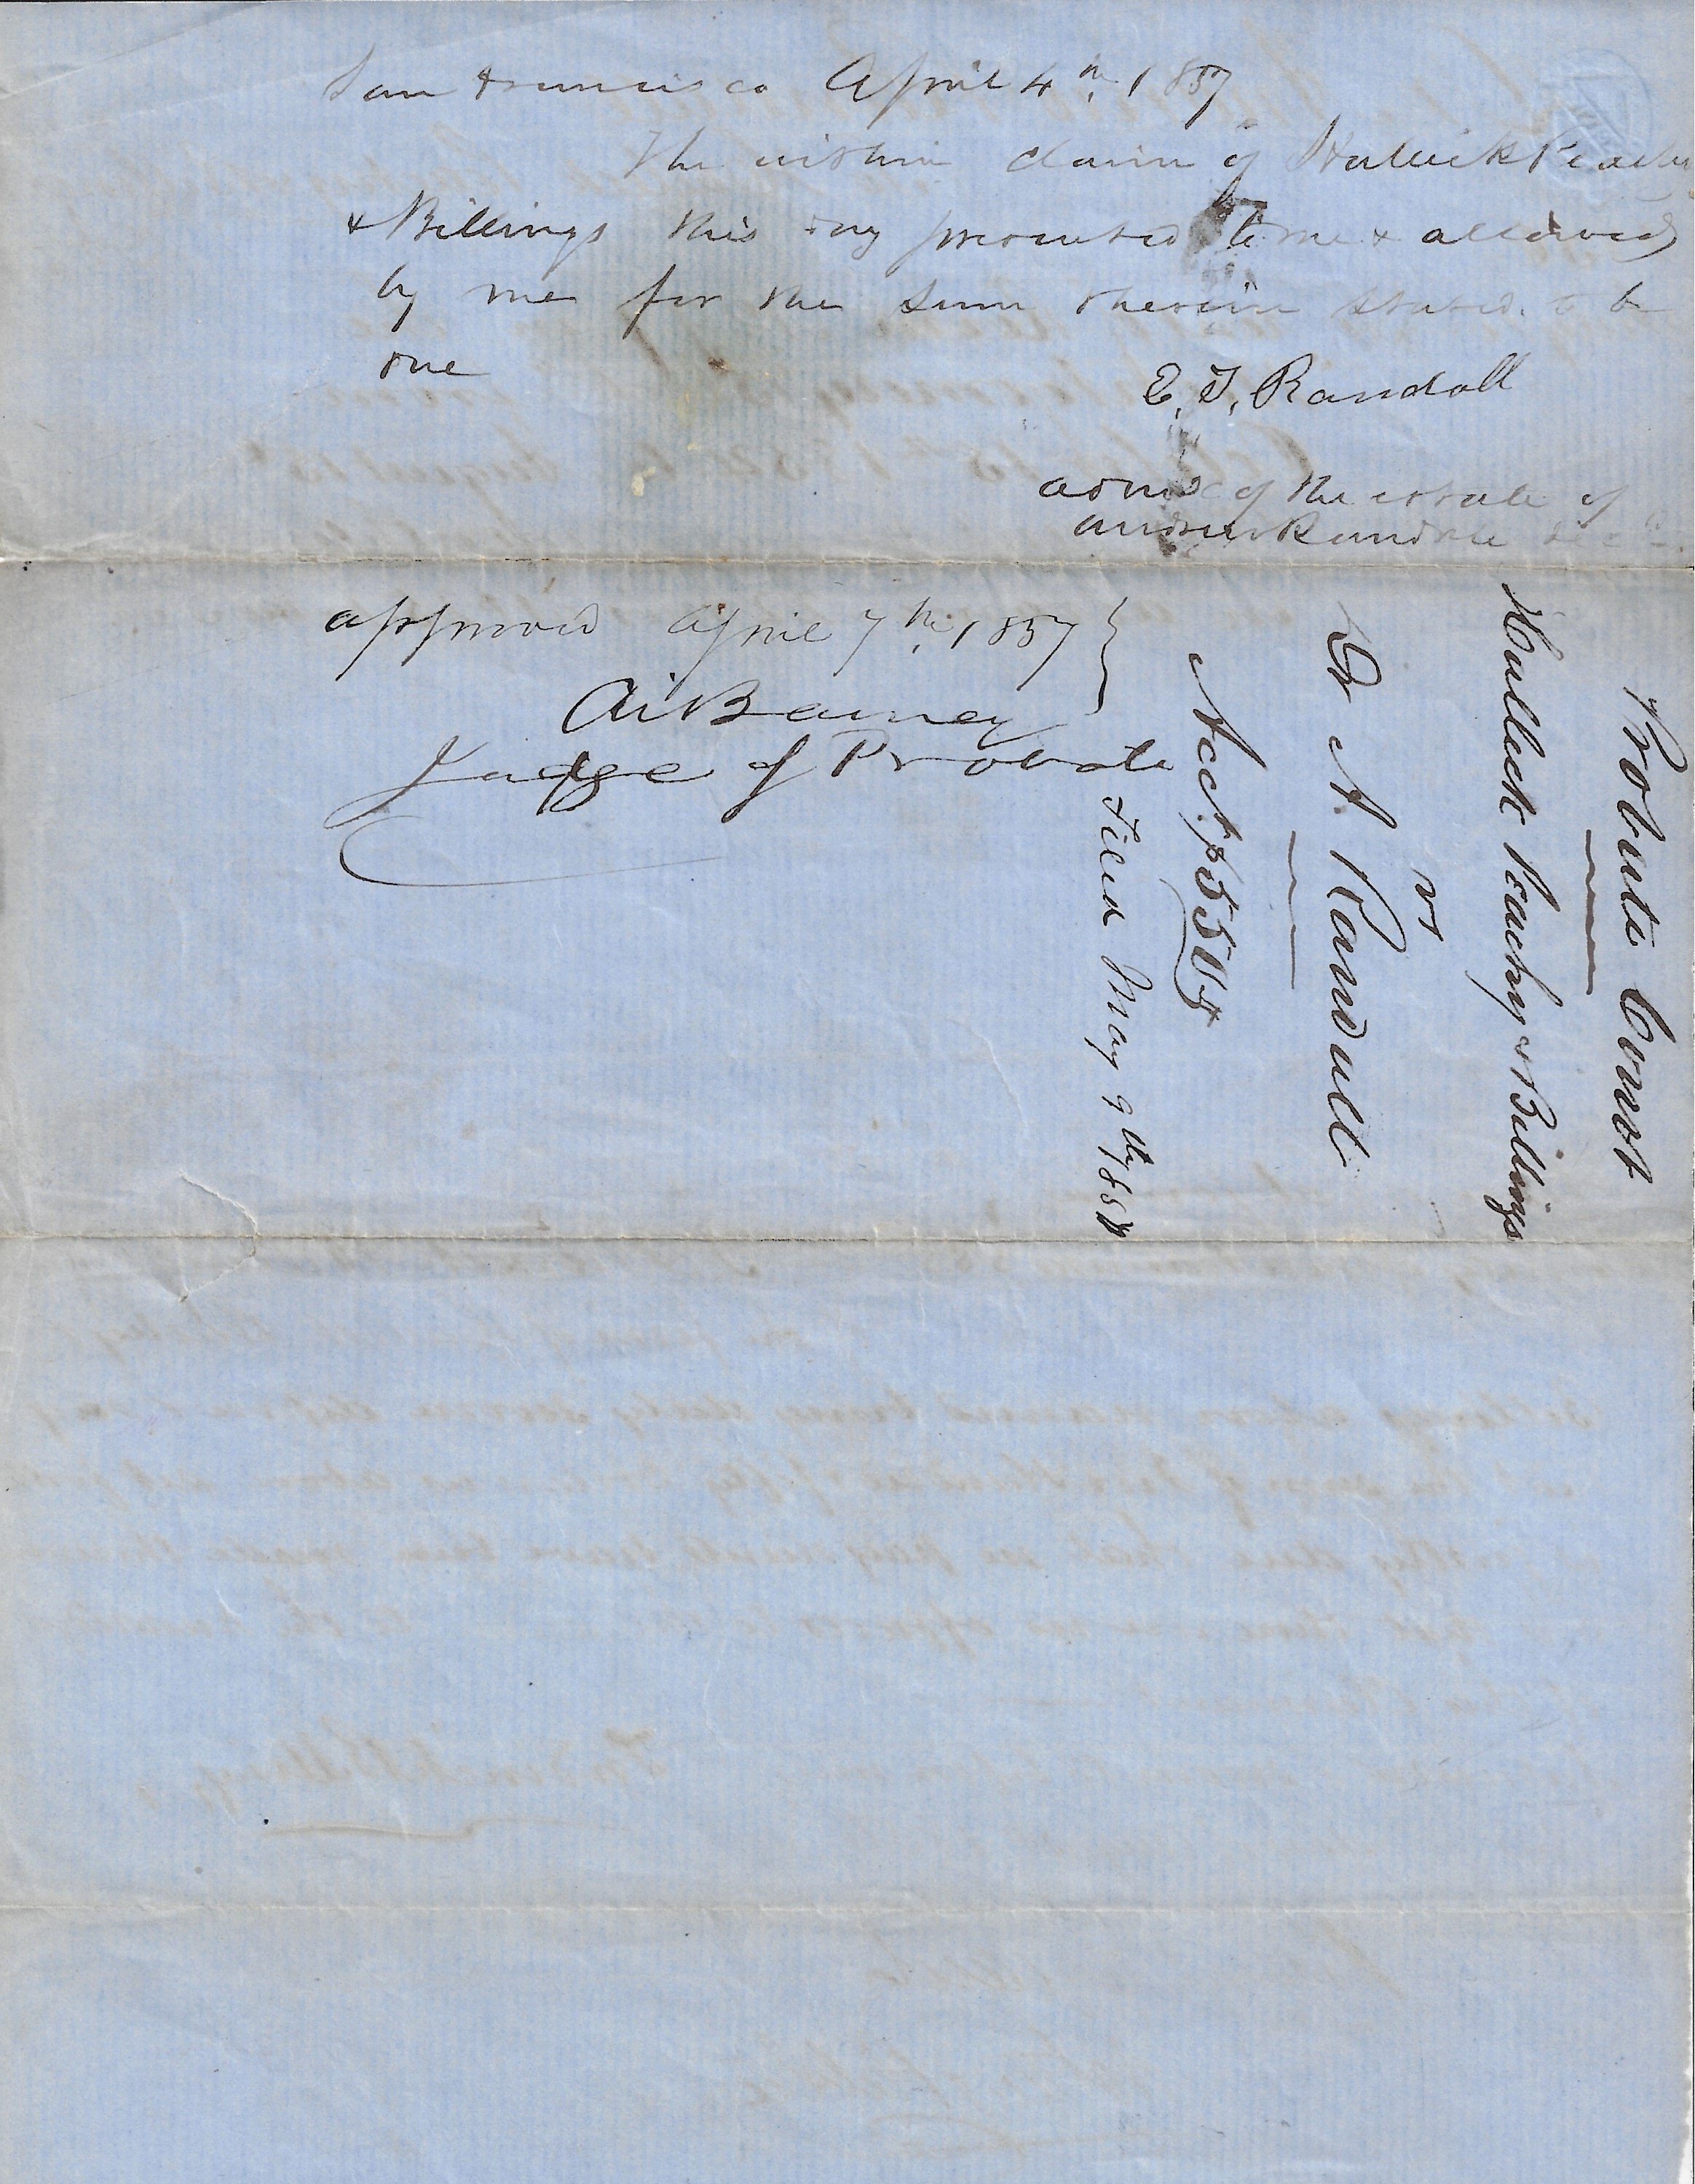 San Francisco April 4th. 1857
The within claim of Halleck Peachy
& Billings this day presented to me & allowed
by me for the sum therein stated. to be
due
E. T. Randall
admr of the estate of
Andrew Randall decd.
approved April 7th. 1857 }
Ai Barney
Judge of Probate
Probate Court
Halleck Peachy & Billings
vs
A Randall
Acct $550
Filed May 9th